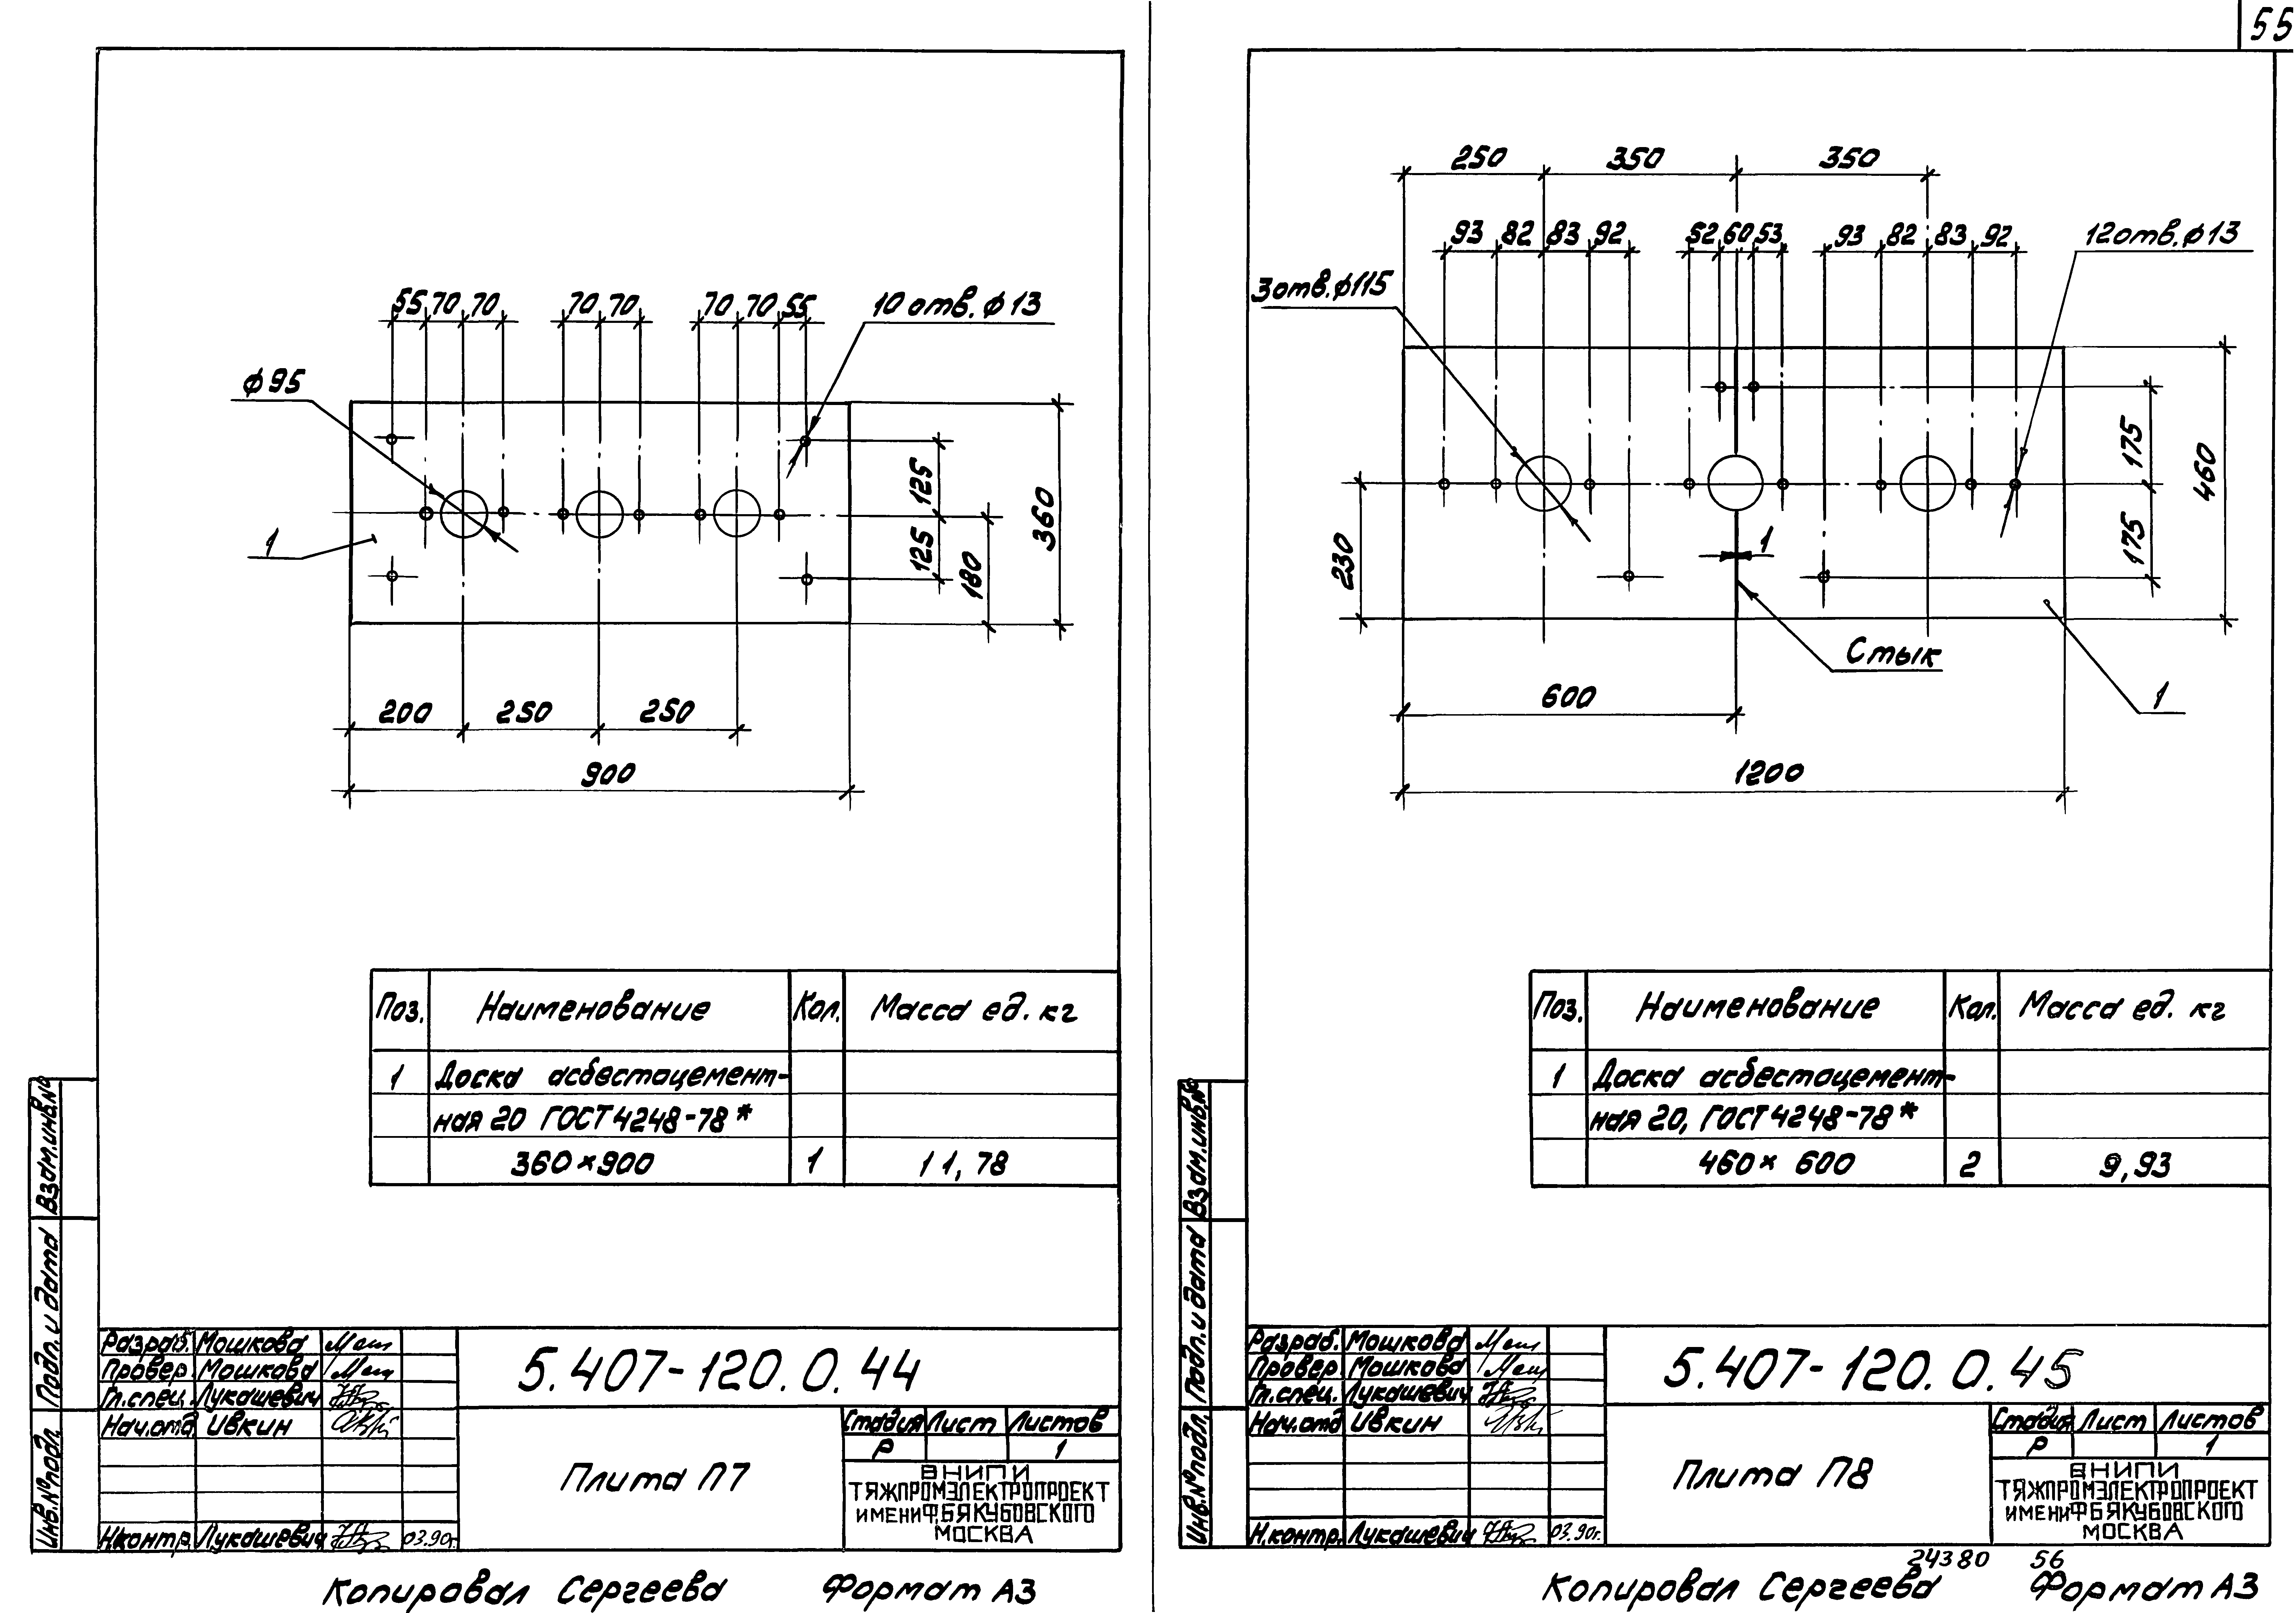 55
55 70 70 70 70 70 70 55
10 отв. ф 13
ф 95
1
125
125
180
360
200 250 250
900
Поз. Наименование Кол. Масса ед. кг
1 Доска асбестоцемент-
ная 20 ГОСТ 4248-78*
360×900 1 11,78
Взам.инв.№
Подп. и дата
Инв.№подл.
Разраб. Мошкова
Провер. Мошкова
Гл.спец. Лукашевич
Нач.отд Ивкин
Н.контр. Лукашевич 03.90г.
5.407-120.0.44
Плита П7
Стадия Лист Листов
Р 1
ВНИПИ
ТЯЖПРОМЭЛЕКТРОПРОЕКТ
ИМЕНИ Ф.Б.ЯКУБОВСКОГО
МОСКВА
Копировал Сергеева Формат А3
250 350 350
93 82 83 92 52 60 53 93 82 83 92
12 отв. ф 13
3 отв. ф 115
175
175
460
230
1
Стык
1
600
1200
Поз. Наименование Кол. Масса ед. кг
1 Доска асбестоцемент-
ная 20, ГОСТ 4248-78*
460× 600 2 9,93
Взам.инв.№
Подп. и дата
Инв.№подл.
Разраб. Мошкова
Провер. Мошкова
Гл.спец. Лукашевич
Нач.отд Ивкин
Н.контр. Лукашевич 03.90г.
5.407-120.0.45
Плита П8
Стадия Лист Листов
Р 1
ВНИПИ
ТЯЖПРОМЭЛЕКТРОПРОЕКТ
ИМЕНИ Ф.Б.ЯКУБОВСКОГО
МОСКВА
24380 56
Копировал Сергеева Формат А3